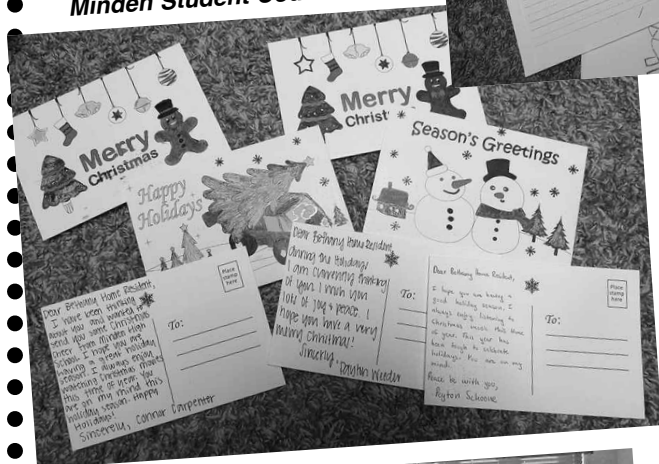 Minden Student
Merry
Christmas
Merry
Christ
Season's Greetings
Happy
Holidays
Dear Bethany Home Resident,
I have been thinking
about you and wanted to
send you some Christmas
cheer from Minden High
School. I hope you are
having a great holiday
season. I always enjoy
watching Christmas movies
this time of year. You
are on my mind this
holiday season. Happy
Holidays!
Sincerely, Connor Carpenter
Place
stamp
here
To:
Dear Bethany Home Resident,
during the Holidays
I am currently thinking
of you. I wish you
lots of joy & peace. I
hope you have a very
merry Christmas!
Sincerly,
To:
Dear Bethany Home Resident,
I hope you are having a
good holiday season. I
always enjoy listening to
Christmas music this time
of year. This year has
been tough to celebrate
holidays. You are on my
mind.
Peace be with you,
Peyton Schoone
Place
stamp
here
To: